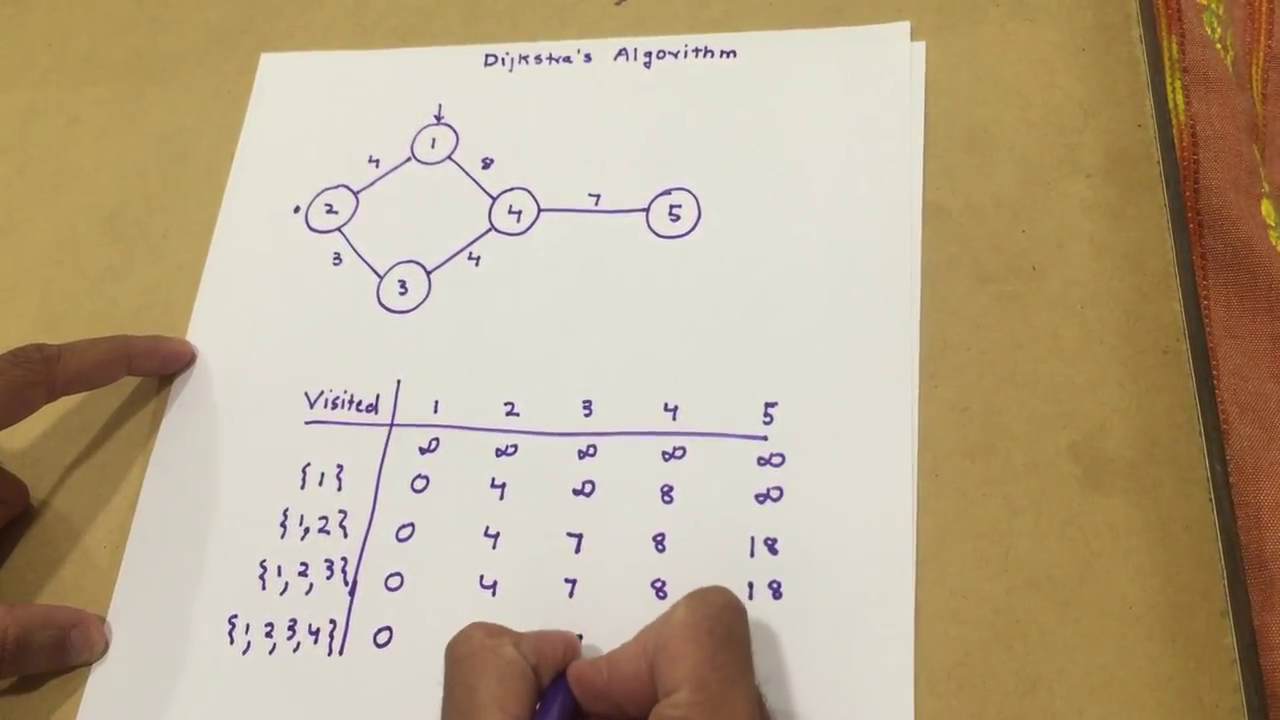 Dijkstra's Algorithm
1
4 8
2 4 7 5
3 4
3
Visited 1 2 3 4 5
∞ ∞ ∞ ∞ ∞
{1} 0 4 ∞ 8 ∞
{1,2} 0 4 7 8 18
{1,2,3} 0 4 7 8 18
{1,2,3,4} 0